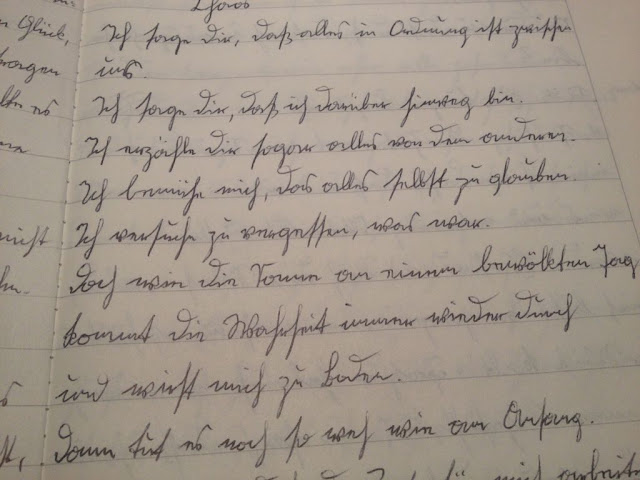 Chaos
n Glück,
Ich sage dir, daß alles in Ordnung ist zwischen
uns.
Ich sage dir, daß ich darüber hinweg bin.
Ich erzähle dir sogar alles von dem anderen.
Ich bemühe mich, das alles selbst zu glauben.
nicht
Ich versuche zu vergessen, was war.
Doch wie die Sonne an einem bewölkten Tag
kommt die Wahrheit immer wieder durch
und wirft mich zu Boden.
Dann tut es noch so weh wie am Anfang.